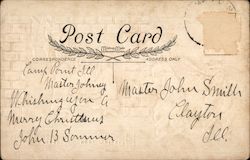 Post Card
CORRESPONDENCE
ADDRESS ONLY
Camp Point Ill
Master Johney
Whishing you a
Merry Christmas
John B Sommer
Master John Smith
Clayton
Ill